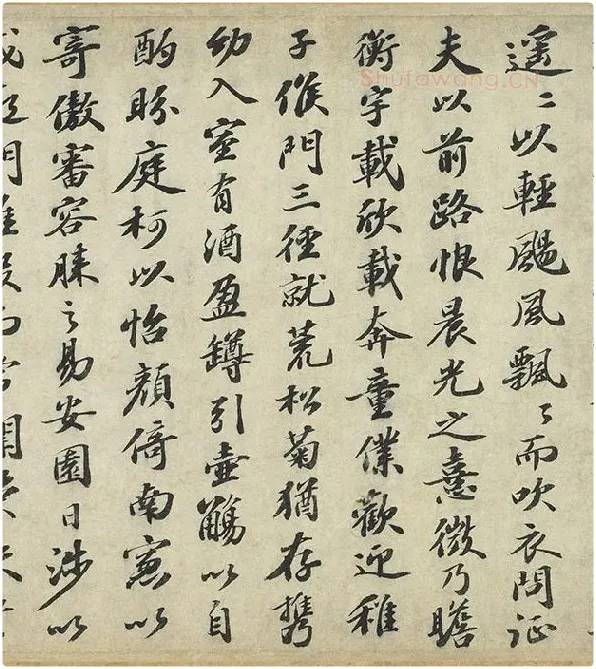 遥〻以輕颺風飄〻而吹衣問征
夫以前路恨晨光之熹微乃瞻
衡宇載欣載奔童僕歡迎稚
子候門三徑就荒松菊猶存攜
幼入室有酒盈罇引壺觴以自
酌眄庭柯以怡顔倚南窓以
寄傲審容膝之易安園日涉以
Shufawang.CN